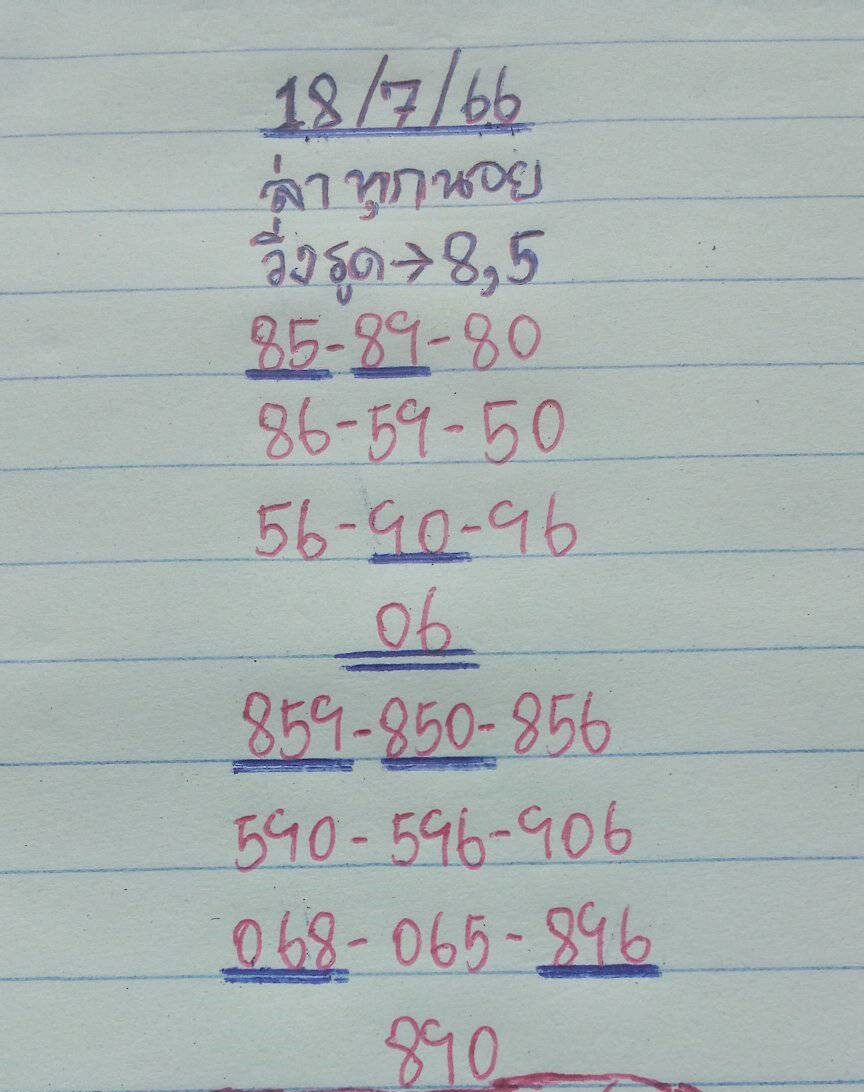 18/7/66
ล่าทุกนอย
วิ่งรูด→8,5
85-89-80
86-59-50
56-90-96
06
859-850-856
590-596-906
068-065-896
890